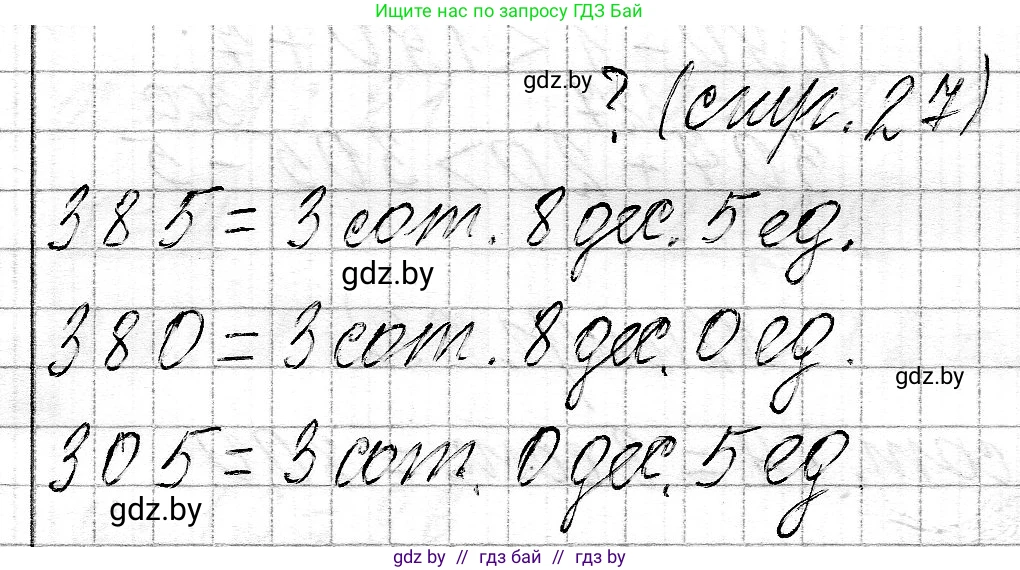 Ищите нас по запросу ГДЗ Бай
gdz.by ? (стр. 27)
385 = 3 сот. 8 дес. 5 ед.
gdz.by
380 = 3 сот. 8 дес. 0 ед.
gdz.by
305 = 3 сот. 0 дес. 5 ед.
gdz.by
gdz.by // гдз бай // гдз by